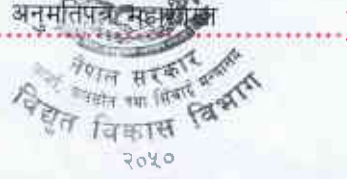 अनुमतिपत्र महाशाखा
नेपाल सरकार
ऊर्जा, जलस्रोत तथा सिंचाई मन्त्रालय
विद्युत विकास विभाग
२०५०